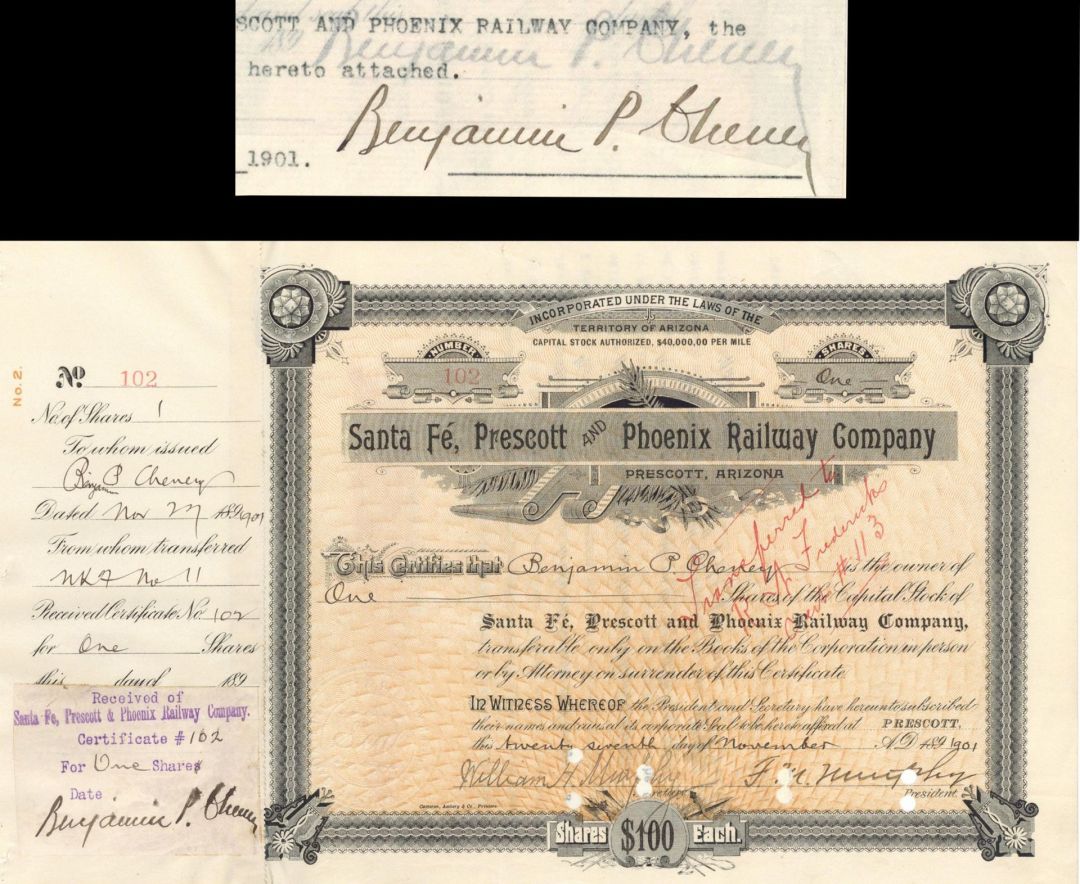 SCOTT AND PHOENIX RAILWAY COMPANY, the
Benjamin P. Cheney
hereto attached.
Benjamin P. Cheney
1901.
INCORPORATED UNDER THE LAWS OF THE
TERRITORY OF ARIZONA
CAPITAL STOCK AUTHORIZED, $40,000,00 PER MILE
NUMBER
102
SHARES
One
Santa Fé, Prescott AND Phoenix Railway Company
PRESCOTT, ARIZONA
Transferred to
Frederick
#113
This Certifies that Benjamin P. Cheney is the owner of
One Shares of the Capital Stock of
Santa Fé, Prescott and Phoenix Railway Company,
transferable only on the Books of the Corporation in person
or by Attorney on surrender of this Certificate.
IN WITNESS WHEREOF the President and Secretary have hereunto subscribed
their names and caused its corporate Seal to be hereto affixed at PRESCOTT,
this twenty seventh day of November A.D. 189 1901
William F. Murphy F. M. Murphy
Secretary President
Shares $100 Each.
No. 2.
No 102
No. of Shares 1
To whom issued
Benjamin P Cheney
Dated Nov 27 189 1901
From whom transferred
No 11
Received Certificate No. 102
for One Shares
this day of 189
Received of
Santa Fe, Prescott & Phoenix Railway Company.
Certificate # 102
For One Shares
Date
Benjamin P. Cheney